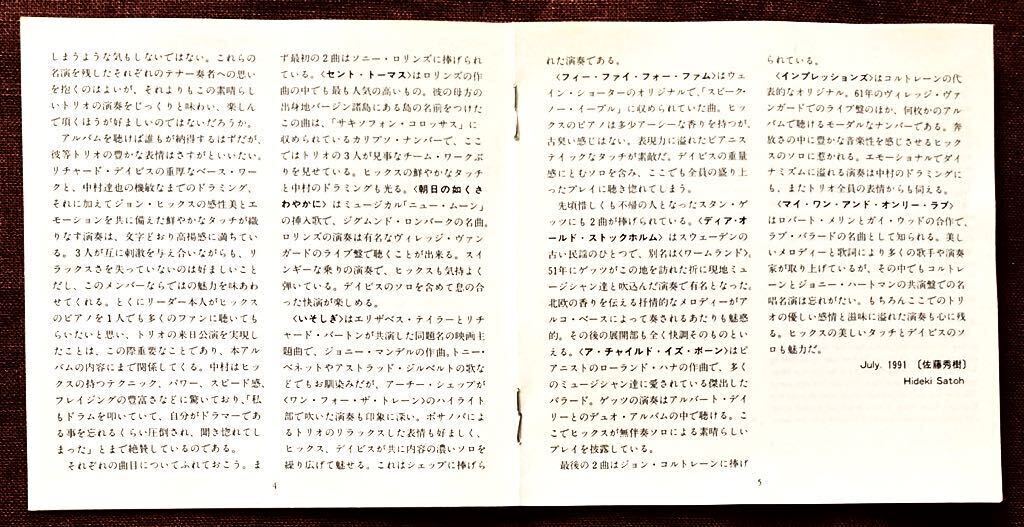 しまうような気もしないではない。これらの
名演を残したそれぞれのテナー奏者への思い
を抱くのはよいが、それよりもこの素晴らし
いトリオの演奏をじっくりと味わい、楽しん
で頂くほうが好ましいのではないだろうか。
アルバムを聴けば誰もが納得するはずだが、
彼等トリオの豊かな表情はさすがといいたい。
リチャード・デイビスの重厚なベース・ワー
クと、中村達也の機敏なまでのドラミング、
それに加えてジョン・ヒックスの感性美とエ
モーションを共に備えた鮮やかなタッチが織
りなす演奏は、文字どおり高揚感に満ちてい
る。3人が互に刺激を与え合いながらも、リ
ラックスさを失っていないのは好ましいこと
だし、このメンバーならではの魅力を味あわ
せてくれる。とくにリーダー本人がヒックス
のピアノを1人でも多くのファンに聴いても
らいたいと思い、トリオの来日公演を実現し
たことは、この際重要なことであり、本アル
バムの内容にまで関係してくる。中村はヒッ
クスの持つテクニック、パワー、スピード感、
フレイジングの豊富さなどに驚いており、「私
もドラムを叩いていて、自分がドラマーであ
る事を忘れるくらい圧倒され、聞き惚れてし
まった」とまで絶賛しているのである。
それぞれの曲目についてふれておこう。ま
ず最初の2曲はソニー・ロリンズに捧げられ
ている。〈セント・トーマス〉はロリンズの作
曲の中でも最も人気の高いもの。彼の母方の
出身地バージン諸島にある島の名前をつけた
この曲は、「サキソフォン・コロッサス」に
収められているカリプソ・ナンバーで、ここ
ではトリオの3人が見事なチーム・ワークぶ
りを見せている。ヒックスの鮮やかなタッチ
と中村のドラミングも光る。〈朝日の如くさ
わやかに〉はミュージカル「ニュー・ムーン」
の挿入歌で、ジグムンド・ロンバークの名曲。
ロリンズの演奏は有名なヴィレッジ・ヴァン
ガードのライブ盤で聴くことが出来る。スイ
ンギーな乗りの演奏で、ヒックスも気持よく
弾いている。デイビスのソロを含めて息の合
った快演が楽しめる。
〈いそしぎ〉はエリザベス・テイラーとリチ
ャード・バートンが共演した同題名の映画主
題曲で、ジョニー・マンデルの作曲。トニー・
ベネットやアストラッド・ジルベルトの歌な
どでもお馴染みだが、アーチー・シェップが
〈ワン・フォー・ザ・トレーン〉のハイライト
部で吹いた演奏も印象に深い。ボサノバによ
るトリオのリラックスした表情も好ましく、
ヒックス、デイビスが共に内容の濃いソロを
繰り広げて魅せる。これはシェップに捧げら
4
れた演奏である。
〈フィー・ファイ・フォー・ファム〉はウェ
イン・ショーターのオリジナルで、「スピーク・
ノー・イーブル」に収められていた曲。ヒッ
クスのピアノは多少アーシーな香りを持つが、
古臭い感じはない。表現力に溢れたピアニス
テイックなタッチが素敵だ。デイビスの重量
感にとむソロを含み、ここでも全員の盛り上
ったプレイに聴き惚れてしまう。
先頃惜しくも不帰の人となったスタン・ゲ
ッツにも2曲が捧げられている。〈ディア・オ
ールド・ストックホルム〉はスウェーデンの
古い民謡のひとつで、別名は〈ワームランド〉。
51年にゲッツがこの地を訪れた折に現地ミュ
ージシャン達と吹込んだ演奏で有名となった。
北欧の香りを伝える抒情的なメロディーがア
ルコ・ベースによって奏されるあたりも魅惑
的。その後の展開部も全く快調そのものとい
える。〈ア・チャイルド・イズ・ボーン〉はピ
アニストのローランド・ハナの作曲で、多く
のミュージシャン達に愛されている傑出した
バラード。ゲッツの演奏はアルバート・デイ
リーとのデュオ・アルバムの中で聴ける。こ
こでヒックスが無伴奏ソロによる素晴らしい
プレイを披露している。
最後の2曲はジョン・コルトレーンに捧げ
られている。
〈インプレッションズ〉はコルトレーンの代
表的なオリジナル。61年のヴィレッジ・ヴァ
ンガードでのライブ盤のほか、何枚かのアル
バムで聴けるモーダルなナンバーである。奔
放さの中に豊かな音楽性を感じさせるヒック
スのソロに惹かれる。エモーショナルでダイ
ナミズムに溢れる演奏は中村のドラミングに
も、またトリオ全員の表情からも伺える。
〈マイ・ワン・アンド・オンリー・ラブ〉
はロバート・メリンとガイ・ウッドの合作で、
ラブ・バラードの名曲として知られる。美し
いメロディーと歌詞により多くの歌手や演奏
家が取り上げているが、その中でもコルトレ
ーンとジョニー・ハートマンの共演盤での名
唱名演は忘れがたい。もちろんここでのトリ
オの優しい感情と滋味に溢れた演奏も心に残
る。ヒックスの美しいタッチとデイビスのソ
ロも魅力だ。
July. 1991 〔佐藤秀樹〕
Hideki Satoh
5